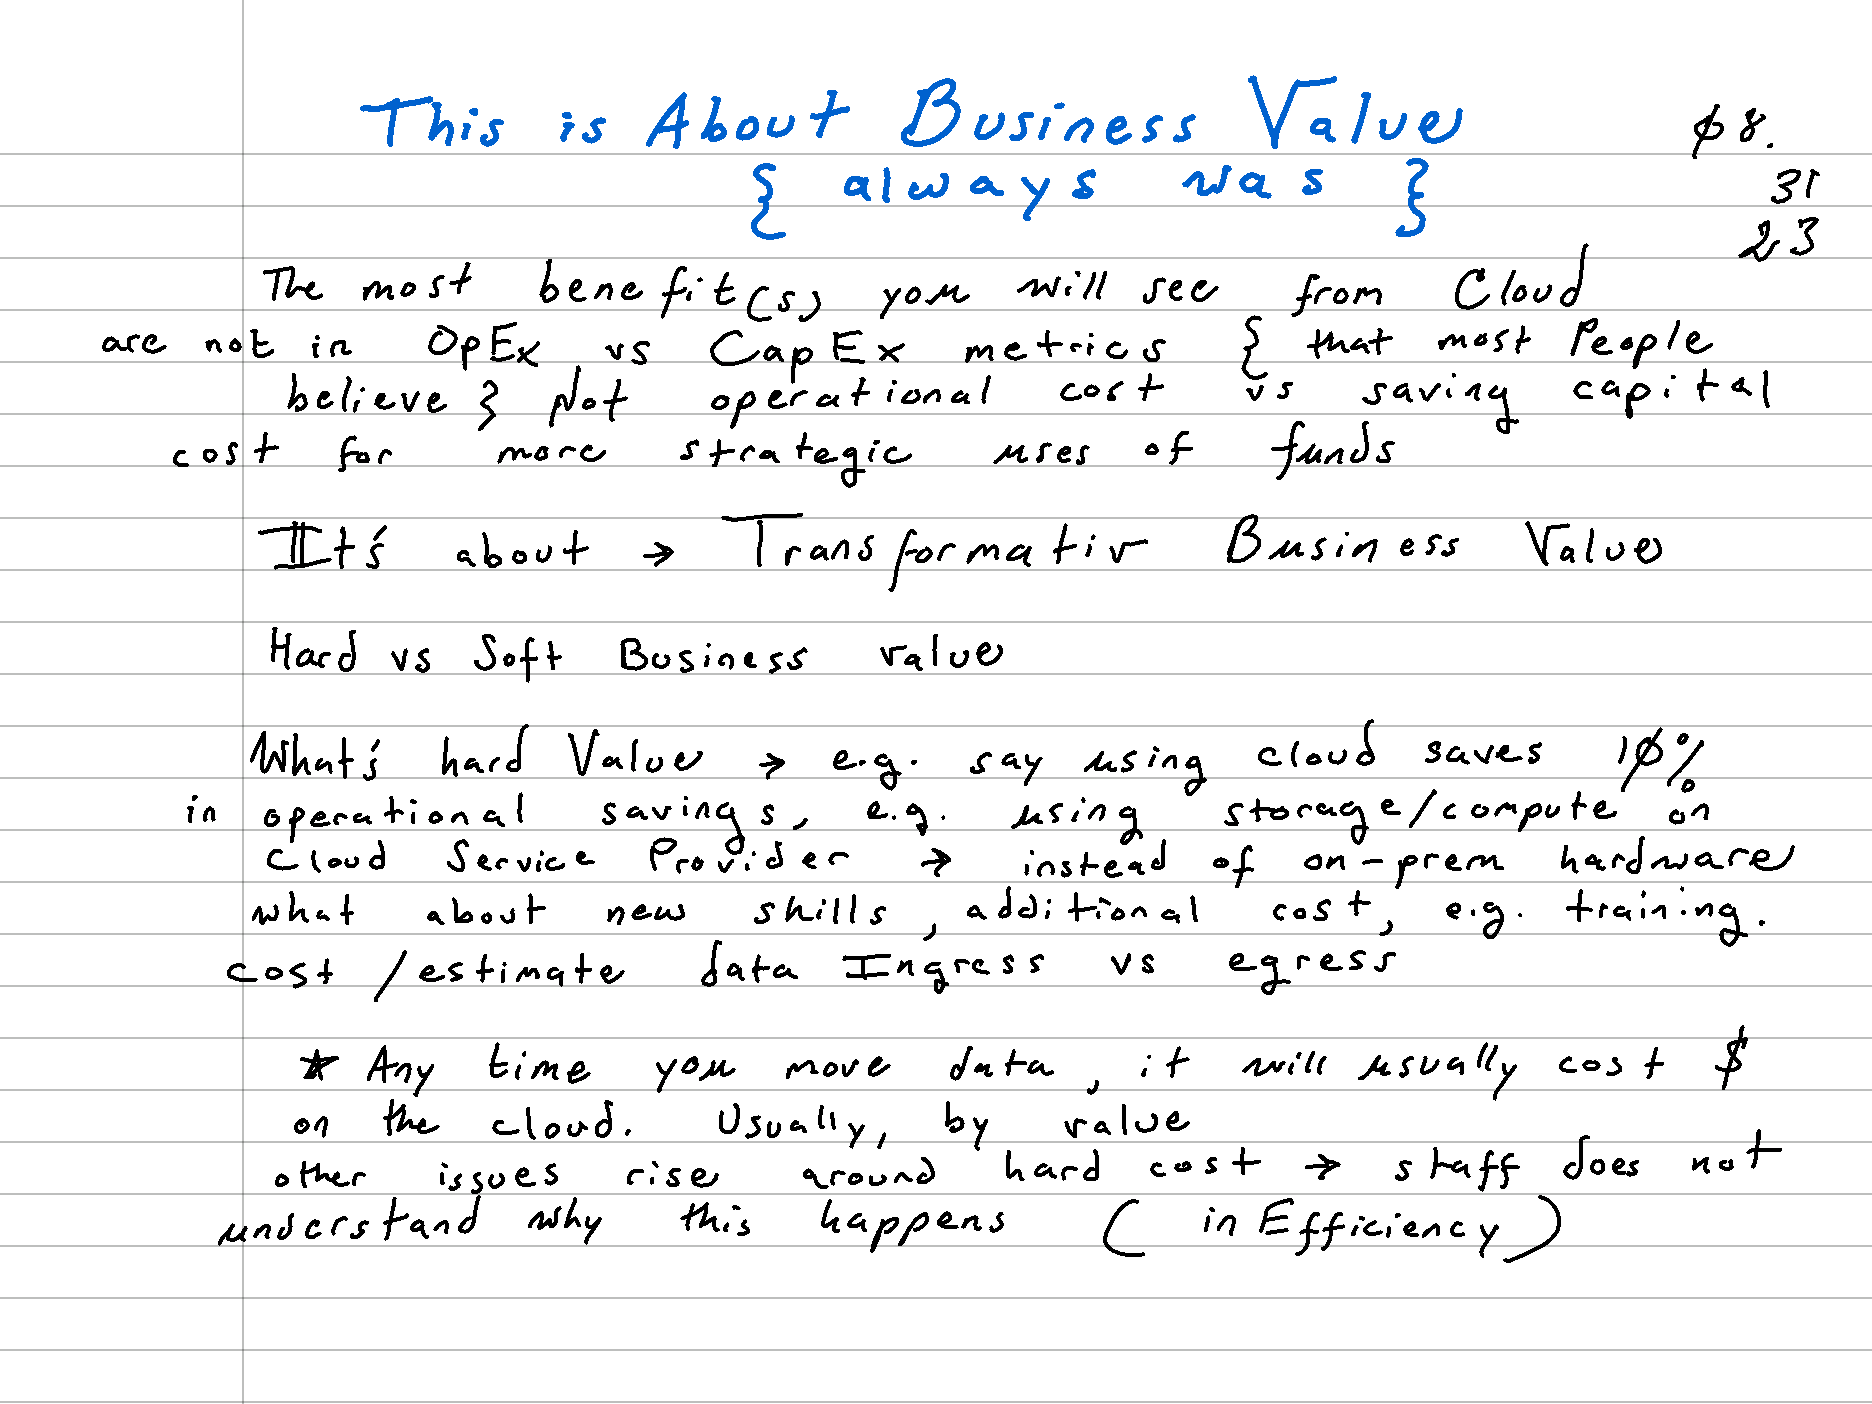 This is About Business Value
{ always was }
08.
31
23
The most benefit(s) you will see from Cloud
are not in OpEx vs CapEx metrics { that most People
believe } Not operational cost vs saving capital
cost for more strategic uses of funds
It's about → Transformativ Business Value
Hard vs Soft Business value
What's hard Value → e.g. say using cloud saves 10%
in operational savings, e.g. using storage/compute on
Cloud Service Provider → instead of on-prem hardware
what about new skills, additional cost, e.g. training.
cost /estimate data Ingress vs egress
* Any time you move data, it will usually cost $
on the cloud. Usually, by value
other issues rise around hard cost → staff does not
understand why this happens ( in Efficiency )